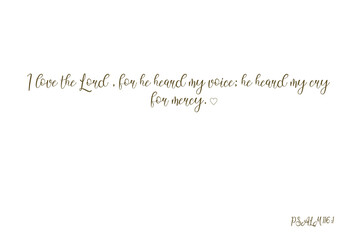 I love the Lord , for he heard my voice; he heard my cry
for mercy. ♡
PSALM 116:1